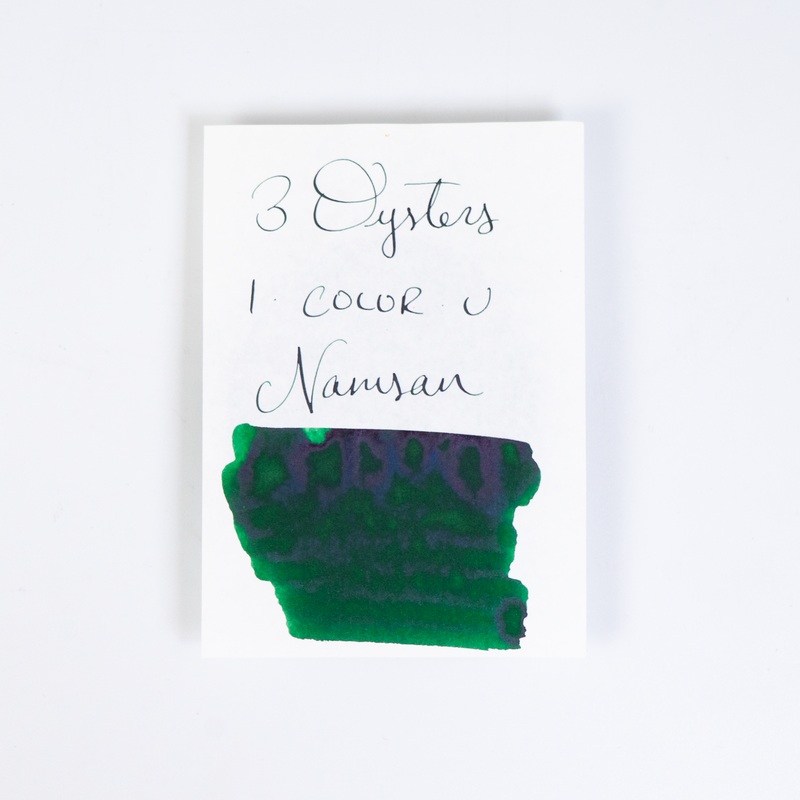 3 Oysters
I. COLOR. U
Namsan